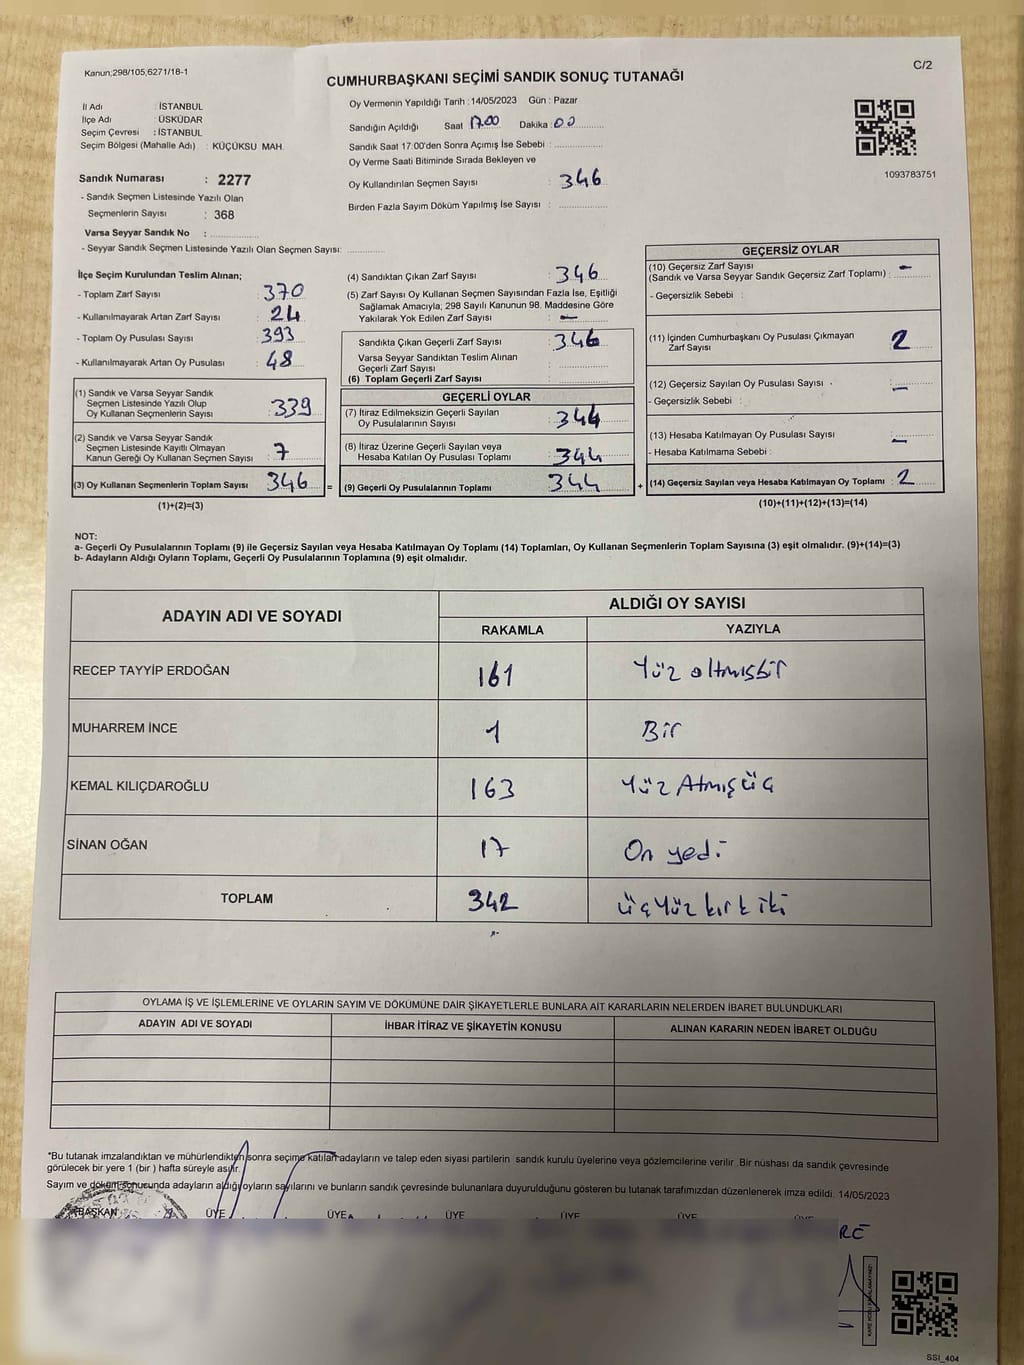 Kanun;298/105,6271/18-1
C/2
CUMHURBAŞKANI SEÇİMİ SANDIK SONUÇ TUTANAĞI
İl Adı : İSTANBUL
İlçe Adı : ÜSKÜDAR
Seçim Çevresi : İSTANBUL
Seçim Bölgesi (Mahalle Adı) : KÜÇÜKSU MAH.
Oy Vermenin Yapıldığı Tarih : 14/05/2023 Gün : Pazar
Sandığın Açıldığı Saat 17.00 Dakika : 00
Sandık Saat 17.00'den Sonra Açımış İse Sebebi :
Oy Verme Saati Bitiminde Sırada Bekleyen ve
Oy Kullandırılan Seçmen Sayısı : 346
Birden Fazla Sayım Döküm Yapılmış İse Sayısı :
1093783751
Sandık Numarası : 2277
- Sandık Seçmen Listesinde Yazılı Olan
Seçmenlerin Sayısı : 368
Varsa Seyyar Sandık No :
- Seyyar Sandık Seçmen Listesinde Yazılı Olan Seçmen Sayısı:
İlçe Seçim Kurulundan Teslim Alınan;
- Toplam Zarf Sayısı : 370
- Kullanılmayarak Artan Zarf Sayısı : 24
- Toplam Oy Pusulası Sayısı : 393
- Kullanılmayarak Artan Oy Pusulası : 48
(1) Sandık ve Varsa Seyyar Sandık
Seçmen Listesinde Yazılı Olup
Oy Kullanan Seçmenlerin Sayısı : 339
(2) Sandık ve Varsa Seyyar Sandık
Seçmen Listesinde Kayıtlı Olmayan
Kanun Gereği Oy Kullanan Seçmen Sayısı : 7
(3) Oy Kullanan Seçmenlerin Toplam Sayısı : 346 =
(1)+(2)=(3)
(4) Sandıktan Çıkan Zarf Sayısı : 346
(5) Zarf Sayısı Oy Kullanan Seçmen Sayısından Fazla İse, Eşitliği
Sağlamak Amacıyla; 298 Sayılı Kanunun 98. Maddesine Göre
Yakılarak Yok Edilen Zarf Sayısı : -
Sandıkta Çıkan Geçerli Zarf Sayısı : 346
Varsa Seyyar Sandıktan Teslim Alınan
Geçerli Zarf Sayısı :
(6) Toplam Geçerli Zarf Sayısı :
GEÇERLİ OYLAR
(7) İtiraz Edilmeksizin Geçerli Sayılan
Oy Pusulasının Sayısı : 344
(8) İtiraz Üzerine Geçerli Sayılan veya
Hesaba Katılan Oy Pusulası Toplamı : 344
(9) Geçerli Oy Pusulalarının Toplamı : 344 +
GEÇERSİZ OYLAR
(10) Geçersiz Zarf Sayısı : -
(Sandık ve Varsa Seyyar Sandık Geçersiz Zarf Toplamı) :
- Geçersizlik Sebebi :
(11) İçinden Cumhurbaşkanı Oy Pusulası Çıkmayan
Zarf Sayısı : 2
(12) Geçersiz Sayılan Oy Pusulası Sayısı : -
- Geçersizlik Sebebi :
(13) Hesaba Katılmayan Oy Pusulası Sayısı : -
- Hesaba Katılmama Sebebi :
(14) Geçersiz Sayılan veya Hesaba Katılmayan Oy Toplamı : 2
(10)+(11)+(12)+(13)=(14)
NOT:
a- Geçerli Oy Pusulalarının Toplamı (9) ile Geçersiz Sayılan veya Hesaba Katılmayan Oy Toplamı (14) Toplamları, Oy Kullanan Seçmenlerin Toplam Sayısına (3) eşit olmalıdır. (9)+(14)=(3)
b- Adayların Aldığı Oyların Toplamı, Geçerli Oy Pusulalarının Toplamına (9) eşit olmalıdır.
ADAYIN ADI VE SOYADI
ALDIĞI OY SAYISI
RAKAMLA YAZIYLA
RECEP TAYYİP ERDOĞAN 161 Yüz altmışbir
MUHARREM İNCE 1 Bir
KEMAL KILIÇDAROĞLU 163 Yüz Atmışüç
SİNAN OĞAN 17 On yedi
TOPLAM 342 üçYüz kırk iki
OYLAMA İŞ VE İŞLEMLERİNE VE OYLARIN SAYIM VE DÖKÜMÜNE DAİR ŞİKAYETLERLE BUNLARA AİT KARARLARIN NELERDEN İBARET BULUNDUKLARI
ADAYIN ADI VE SOYADI İHBAR İTİRAZ VE ŞİKAYETİN KONUSU ALINAN KARARIN NEDEN İBARET OLDUĞU
*Bu tutanak imzalandıktan ve mühürlendikten sonra seçime katılan adayların ve talep eden siyasi partilerin sandık kurulu üyelerine veya gözlemcilerine verilir. Bir nushası da sandık çevresinde
görülecek bir yere 1 (bir ) hafta süreyle asılır.
Sayım ve döküm sonucunda adayların aldığı oyların sayılarını ve bunların sandık çevresinde bulunanlara duyurulduğunu gösteren bu tutanak tarafımızdan düzenlenerek imza edildi. 14/05/2023
BAŞKAN ÜYE ÜYE ÜYE ÜYE ÜYE ÜYE
SSI_404